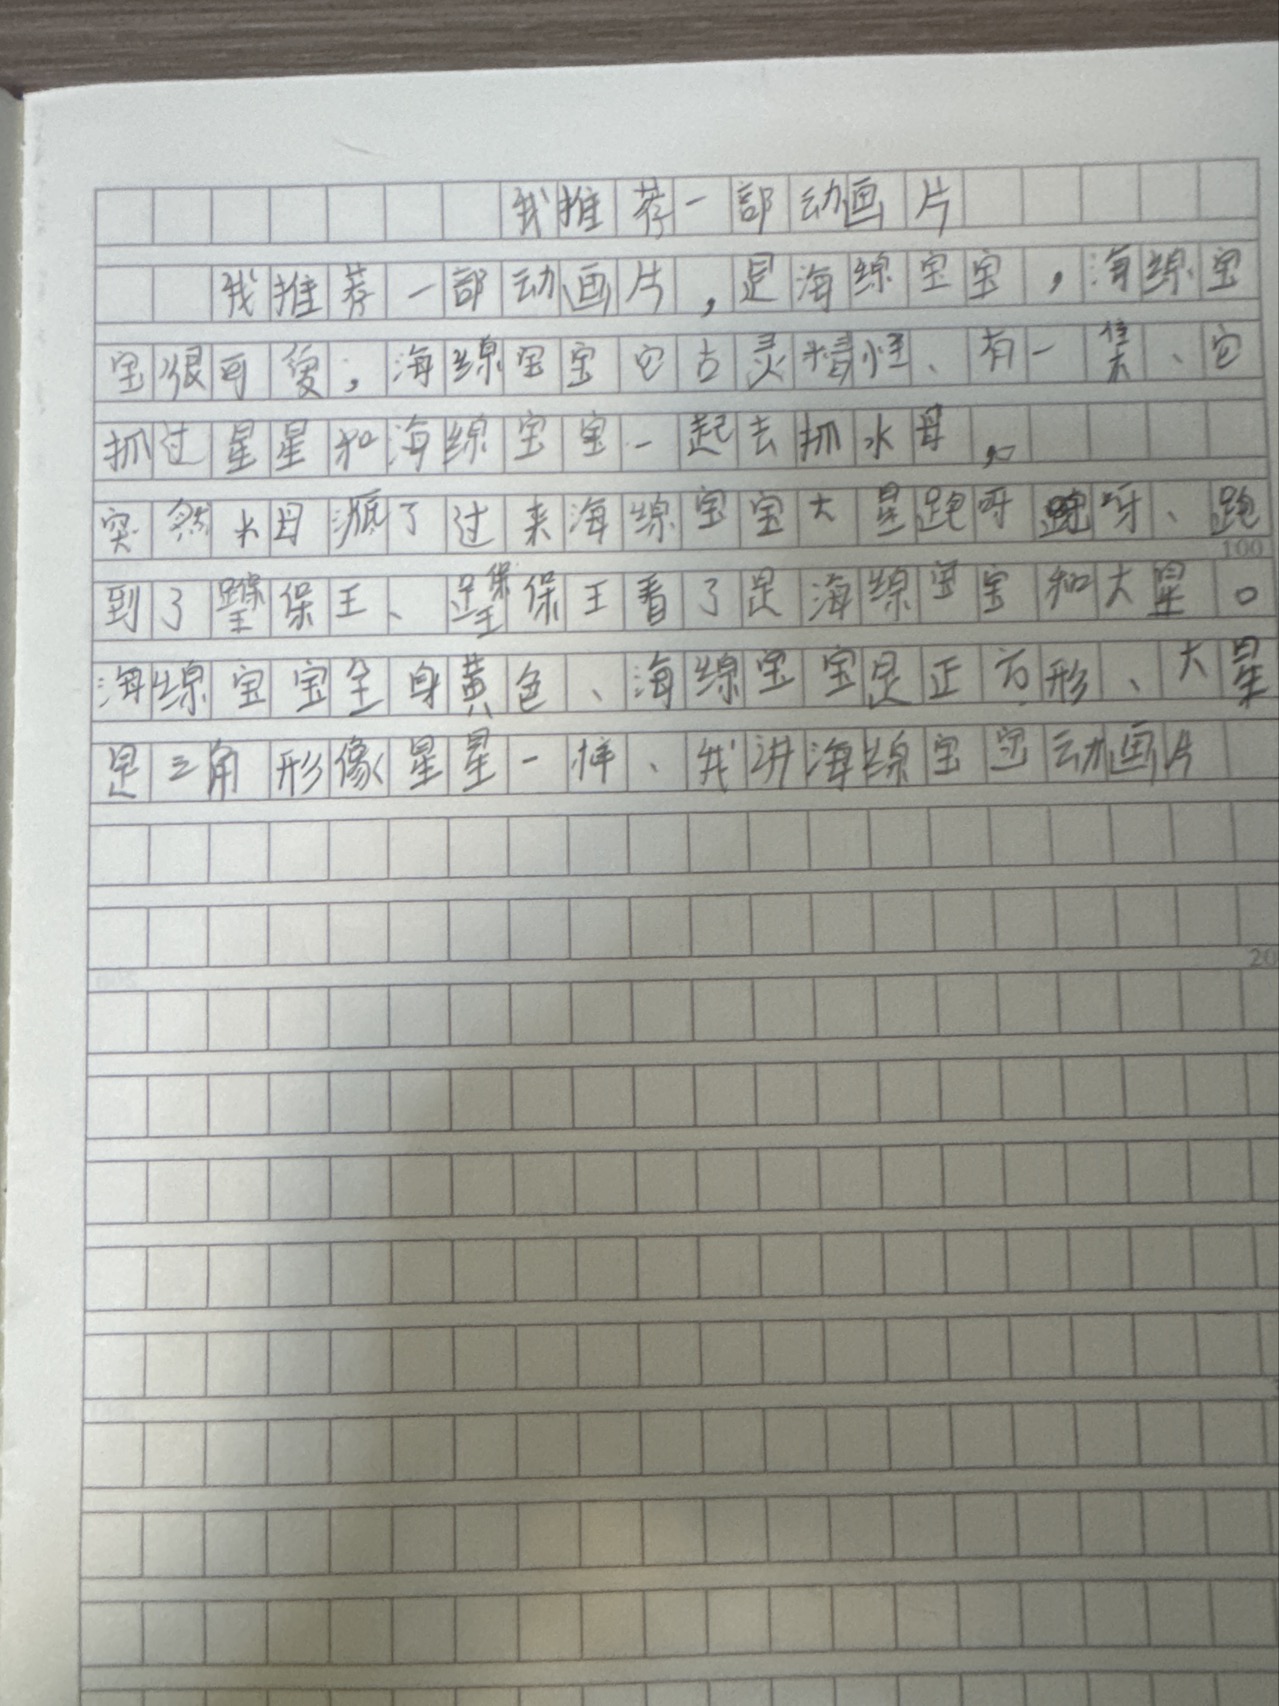 我推荐一部动画片
我推荐一部动画片，是海绵宝宝，海绵宝
宝很可爱，海绵宝宝它古灵精怪、有一集、它
抓过星星和海绵宝宝一起去抓水母。
突然水母疯了过来海绵宝宝大星跑呀跑呀、跑
到了堡保王、堡保王看了是海绵宝宝和大星。
海绵宝宝全身黄色、海绵宝宝是正方形、大星
是三角形像星星一样、我讲海绵宝宝动画片
100
20